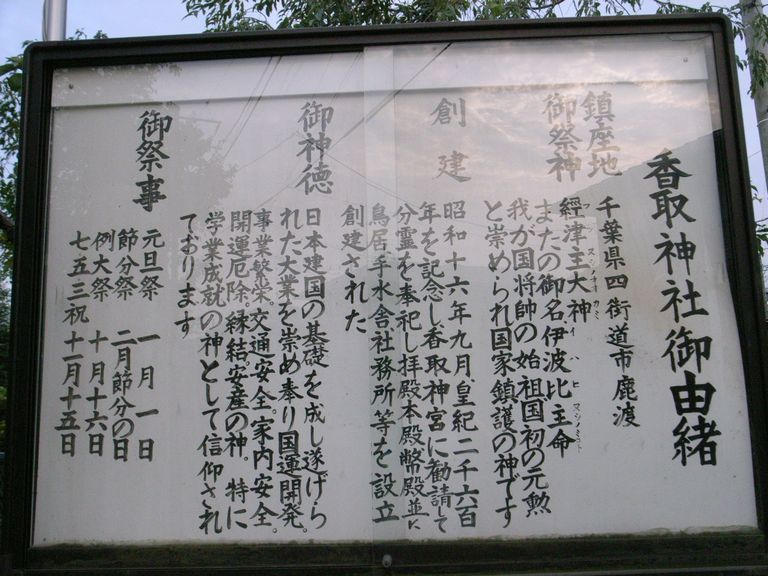 香取神社御由緒
鎮座地 千葉県四街道市鹿渡
御祭神 經津主大神
フツヌシノオオカミ
またの御名伊波比主命
イハヒヌシノミコト
我が国将帥の始祖国初の元勲
と崇められ国家鎮護の神です
創建 昭和十六年九月皇紀二千六百
年を記念し香取神宮に勧請して
分霊を奉祀し拝殿本殿幣殿並に
鳥居手水舎社務所等を設立
創建された
御神徳 日本建国の基礎を成し遂げら
れた大業を崇め奉り国運開発。
事業繁栄。交通安全。家内安全。
開運厄除。縁結安産の神。特に
学業成就の神として信仰され
ております
御祭事 元旦祭 一月一日
節分祭 二月節分の日
例大祭 十月十六日
七五三祝 十一月十五日